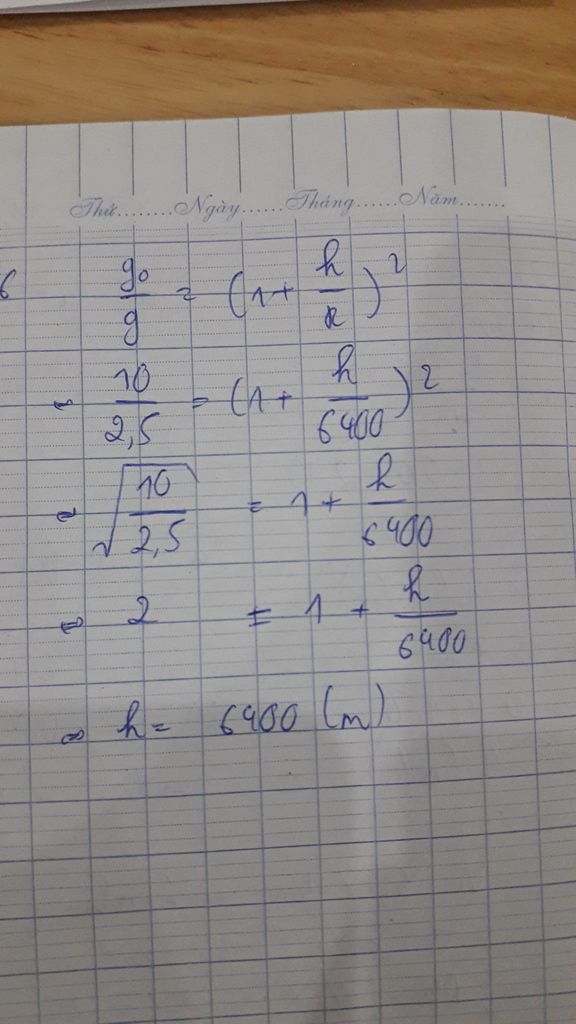 Thứ........Ngày......Tháng......Năm.......
6 g₀/g = (1 + h/R)²
⇔ 10/2,5 = (1 + h/6400)²
⇔ √(10/2,5) = 1 + h/6400
⇔ 2 = 1 + h/6400
⇔ h = 6400 (m)